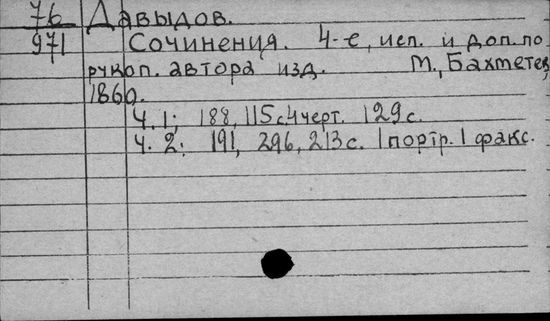 76 Давыдов.
971 Сочинения. 4-е, исп. и доп. по
рукоп. автора изд. М., Бахметев,
1860.
Ч. 1; 188, 115 с 4 черт. 129 с.
Ч. 2: 191, 296, 213 с. 1 портр. 1 факс.